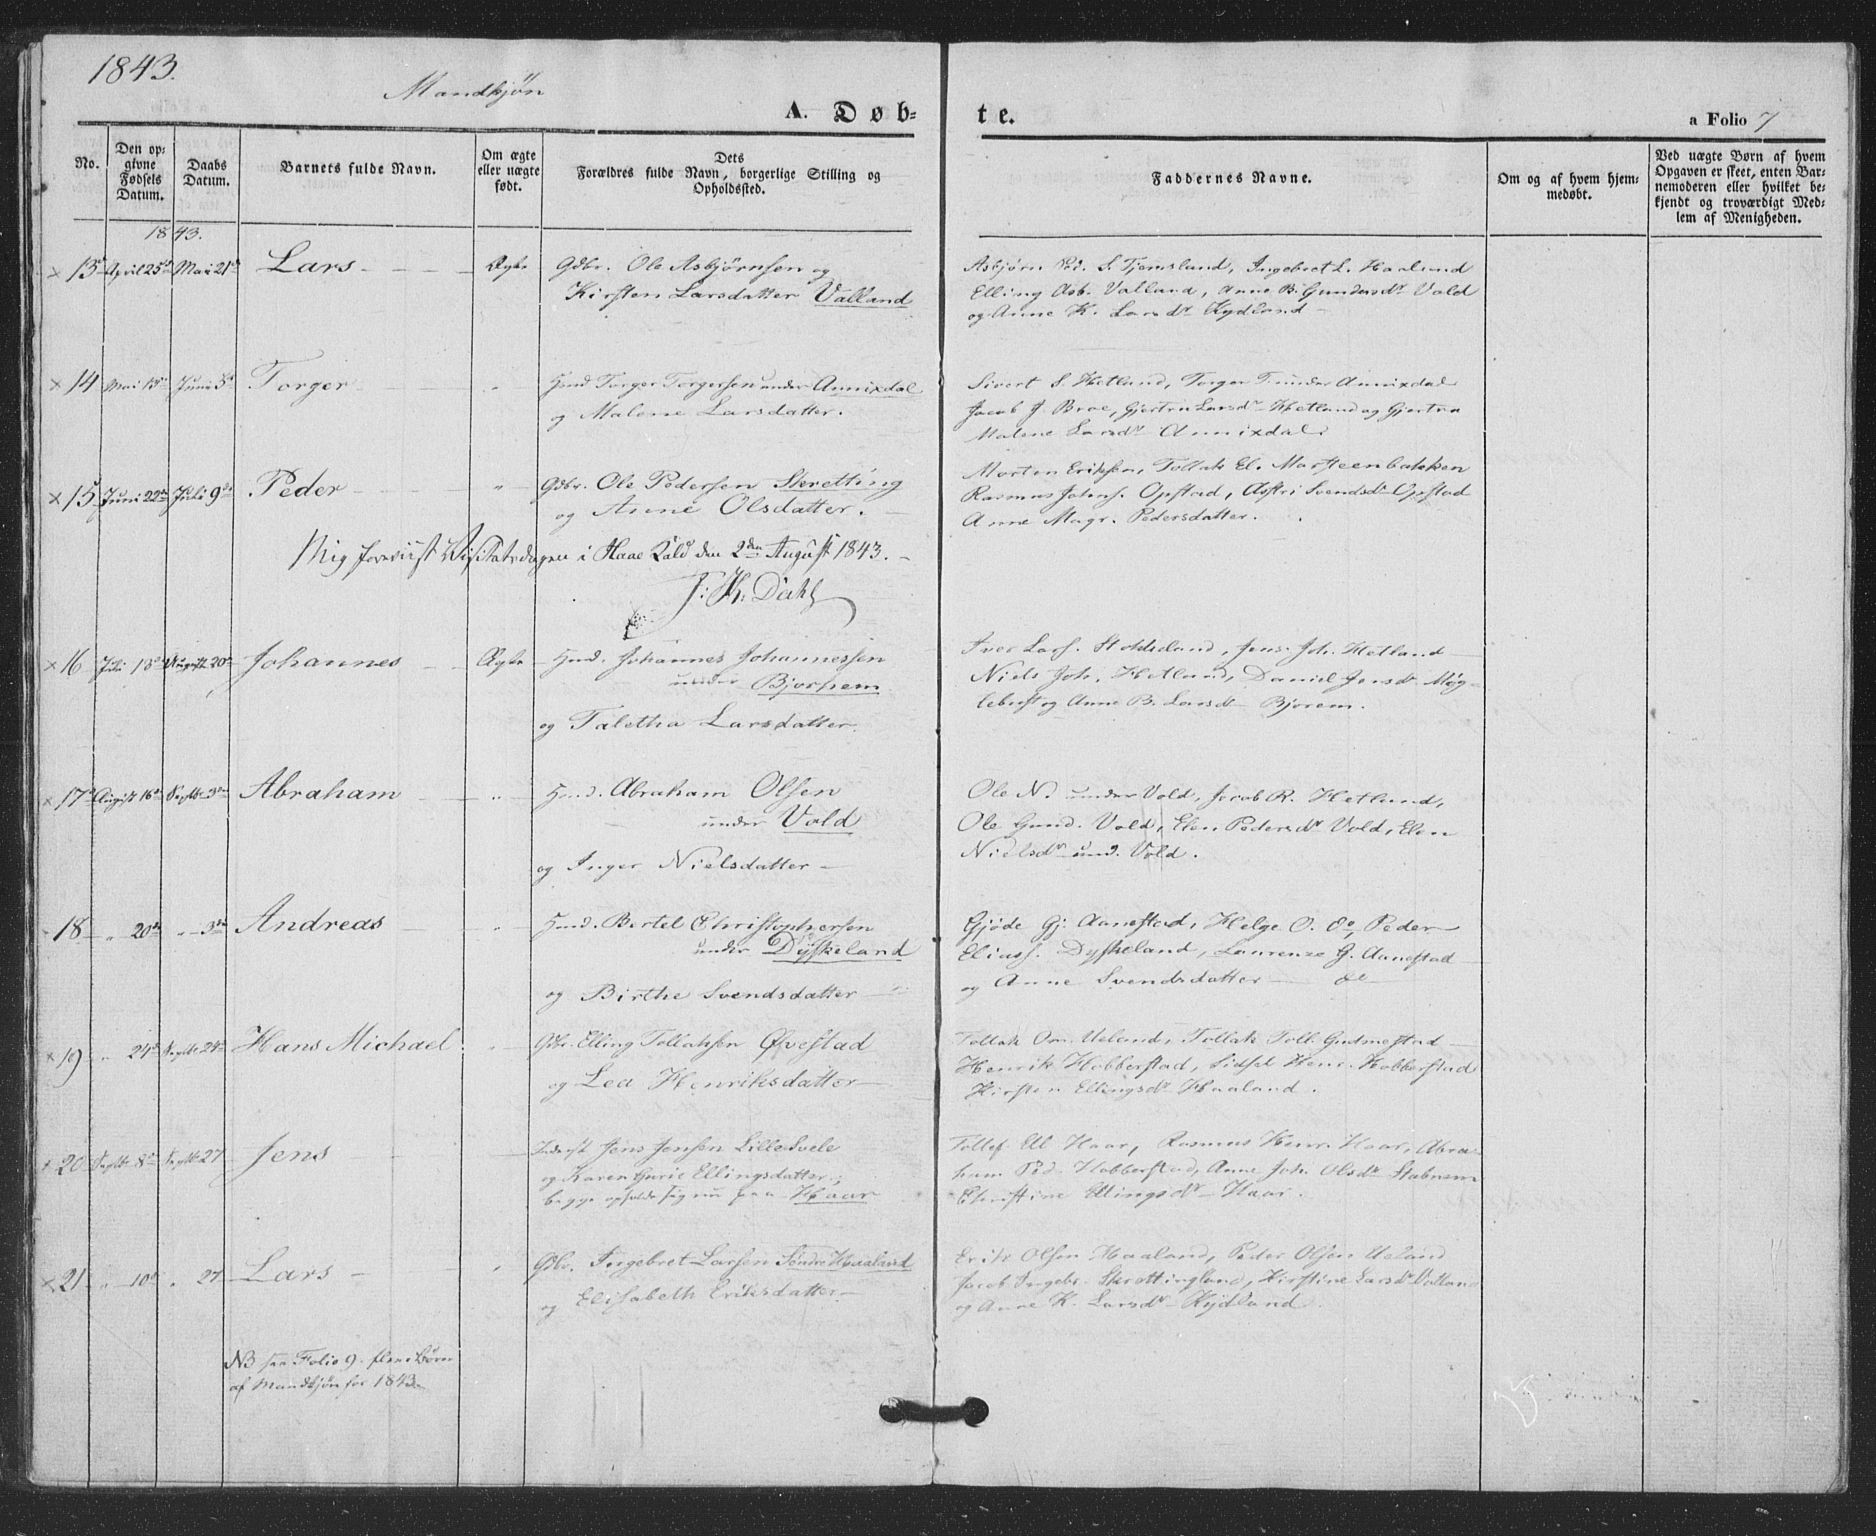 1843.
Mandkjøn
A. Døb-
te.
a Folio 7
No.
Den op-
givne
Fødsels
Datum.
Daabs
Datum.
Barnets fulde Navn.
Om ægte
eller uægte
født.
Dets
Forældres fulde Navn, borgerlige Stilling og
Opholdssted.
Faddernes Navne.
Om og af hvem hjem-
medøbt.
Ved uægte Børn af hvem
Opgaven er skeet, enten Bar-
nemoderen eller hvilket be-
kjendt og troværdigt Med-
lem af Menigheden.
1843.
× 13 April 25de Mai 21de Lars Ægte Gdbr. Ole Asbjørnsen og
Kirsten Larsdatter Valland
Asbjørn Ped. S. Tjemsland, Ingebret L. Haaland
Elling Asb. Valland, Anne B. Gundersdr Vold
og Anne K. Larsdr Kydland
× 14 Mai 15de Juni 5te Torger " Huusmd Torger Torgersen under Annixdal
og Malene Larsdatter.
Sivert S. Hetland, Torger T. under Annixdal
Jacob J. Broe, Gjertru Larsdr Hetland og Gjertru
Malene Larsdr Annixdal
× 15 Juni 22de Juli 9de Peder " Gdbr. Ole Pedersen Skretting
og Anne Olsdatter.
Morten Eriksen, Tollak El. Marsteenbakken
Rasmus Johns. Opstad, Astri Svendsdr Opstad
Anne Magr. Pedersdatter.
Mig foreviist Visitatsdagen i Haae Kald den 2den August 1843.
J: K. Dahl
× 16 Juli 13de August 20de Johannes Ægte Huusmd. Johannes Johannessen
under Bjorhem
og Taletha Larsdatter.
Iver Lars. Stokkeland, Jens Joh. Hetland
Niels Joh. Hetland, Daniel Jensdr Møg-
lebust og Anne B. Larsdr Bjorem.
× 17 August 16de Septbr 3die Abraham " Huusmd. Abraham Olsen
under Vold
og Inger Nielsdatter
Ole N. under Vold, Jacob R. Hetland,
Ole Gund. Vold, Elen Pedersdr Vold, Elen
Nielsdr und. Vold.
18 " 20de " 3die Andreas " Huusmd. Bertel Christophersen
under Dyskeland
og Birthe Svendsdatter
Gjøde Gj. Aanestad, Helge O. do, Peder
Eliass. Dyskeland, Laurenze G. Aanestad
og Anne Svendsdatter do
× 19 " 24de Septbr 24de Hans Michael " Gdbr. Elling Tollaksen Øvestad
og Lea Henriksdatter
Tollak Om. Ueland, Tollak Toll. Gudmestad
Henrik Hobberstad, Sidsel Henr. Hobberstad
Kirsten Ellingsdr Haaland.
× 20 Septbr 8de Septbr 27 Jens Inderst Jens Jensen Lille Svele
og Karen Gurie Ellingsdatter;
begge opholde sig nu paa Haar
Tollef El Haar, Rasmus Henr. Haar, Abra-
ham Ped. Hobberstad, Anne Joh. Olsdr Stabnem
Christine Ellingsdr Haar.
× 21 " 10de " 27 Lars " Gdbr. Ingebret Larsen Søndre Haaland
og Elisabeth Eriksdatter
Erik Olsen Haaland, Peder Olsen Ueland
Jacob Ingebr. Skrettingland, Kirstine Larsdr Valland
og Anne K. Larsdr Kydland.
NB see Folio 9. flere Børn
af Mandkjøn for 1843